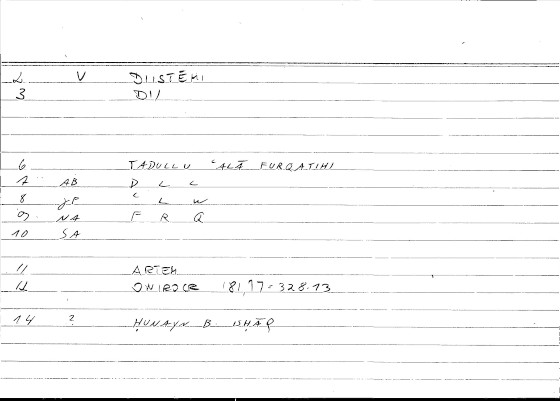 2 V DIISTĒMI
3 DI/
6 TADULLU ʿALĀ FURQATIHI
7 AB D L L
8 JP ʿ L W
9 NA F R Q
10 SA
11 ARTEM
12 ONIROCR 181,17=328.13
14 ? ḤUNAYN B. ISḤĀQ